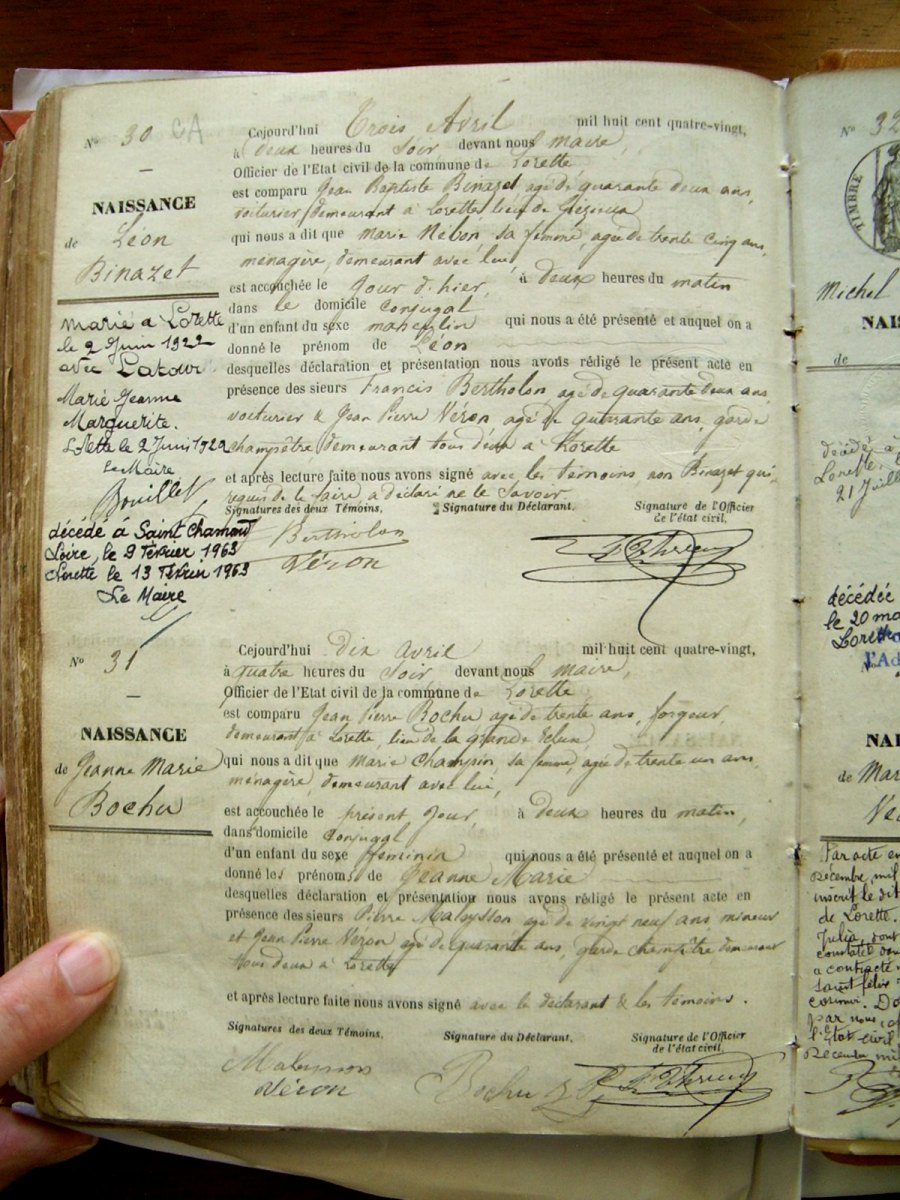 N° 30 CA
NAISSANCE
de Léon
Binazet
marié à Lorette
le 2 Juin 1922
avec Latour
Marie Jeanne
Marguerite.
Lorette le 2 Juin 1922
Le Maire
décédé à Saint Chamond
Loire, le 9 Février 1963
Lorette le 13 Février 1963
Le Maire
Cejourd'hui Trois Avril mil huit cent quatre-vingt,
à deux heures du Soir devant nous maire,
Officier de l'Etat civil de la commune de Lorette
est comparu Jean Baptiste Binazet, agé de quarante deux ans,
voiturier, demeurant à Lorette, lieu de
qui nous a dit que Marie Nébon, sa femme, agée de trente cinq ans,
ménagère, demeurant avec lui,
est accouchée le jour d'hier, à deux heures du matin
dans le domicile conjugal
d'un enfant du sexe masculin qui nous a été présenté et auquel on a
donné le prénom de Léon
desquelles déclaration et présentation nous avons rédigé le présent acte en
présence des sieurs Francis Bertholon agé de quarante deux ans,
voiturier & Jean Pierre Véron agé de quarante ans, garde
champêtre, demeurant tous deux à Lorette
et après lecture faite nous avons signé avec les témoins, non Binazet qui,
requis de le faire, a déclaré ne le savoir
Signatures des deux Témoins. Signature du Déclarant. Signature de l'Officier
de l'état civil.
Bertholon
Véron
N° 31
NAISSANCE
de Jeanne Marie
Bochu
Cejourd'hui dix avril mil huit cent quatre-vingt,
à quatre heures du Soir, devant nous maire,
Officier de l'Etat civil de la commune de Lorette
est comparu Jean Pierre Bochu agé de trente ans, forgeur,
demeurant à Lorette, lieu de la grande Ecluse,
qui nous a dit que Marie Champin, sa femme, agée de trente un ans,
ménagère, demeurant avec lui,
est accouchée le présent jour à deux heures du matin,
dans domicile conjugal
d'un enfant du sexe féminin qui nous a été présenté et auquel on a
donné les prénoms de Jeanne Marie
desquelles déclaration et présentation nous avons rédigé le présent acte en
présence des sieurs Pierre Malaysson agé de vingt neuf ans, mineur
et Jean Pierre Véron agé de quarante ans, garde champêtre demeurant
tous deux à Lorette
et après lecture faite nous avons signé avec le déclarant & les témoins.
Signatures des deux Témoins. Signature du Déclarant. Signature de l'Officier
de l'état civil.
Véron
Bochu
N° 32
TIMBRE
Michel
NAIS
de
décédé à
Lorette
21 Juill
décédée
le 20 ma
Lorette
l'Ad
NAI
de Mar
Par acte en
Décembre, mil
inscrit le dit
de Lorette.
Julia, dont
a contracté
Saint félix
par nous, of
l'Etat civil
Décembre mil